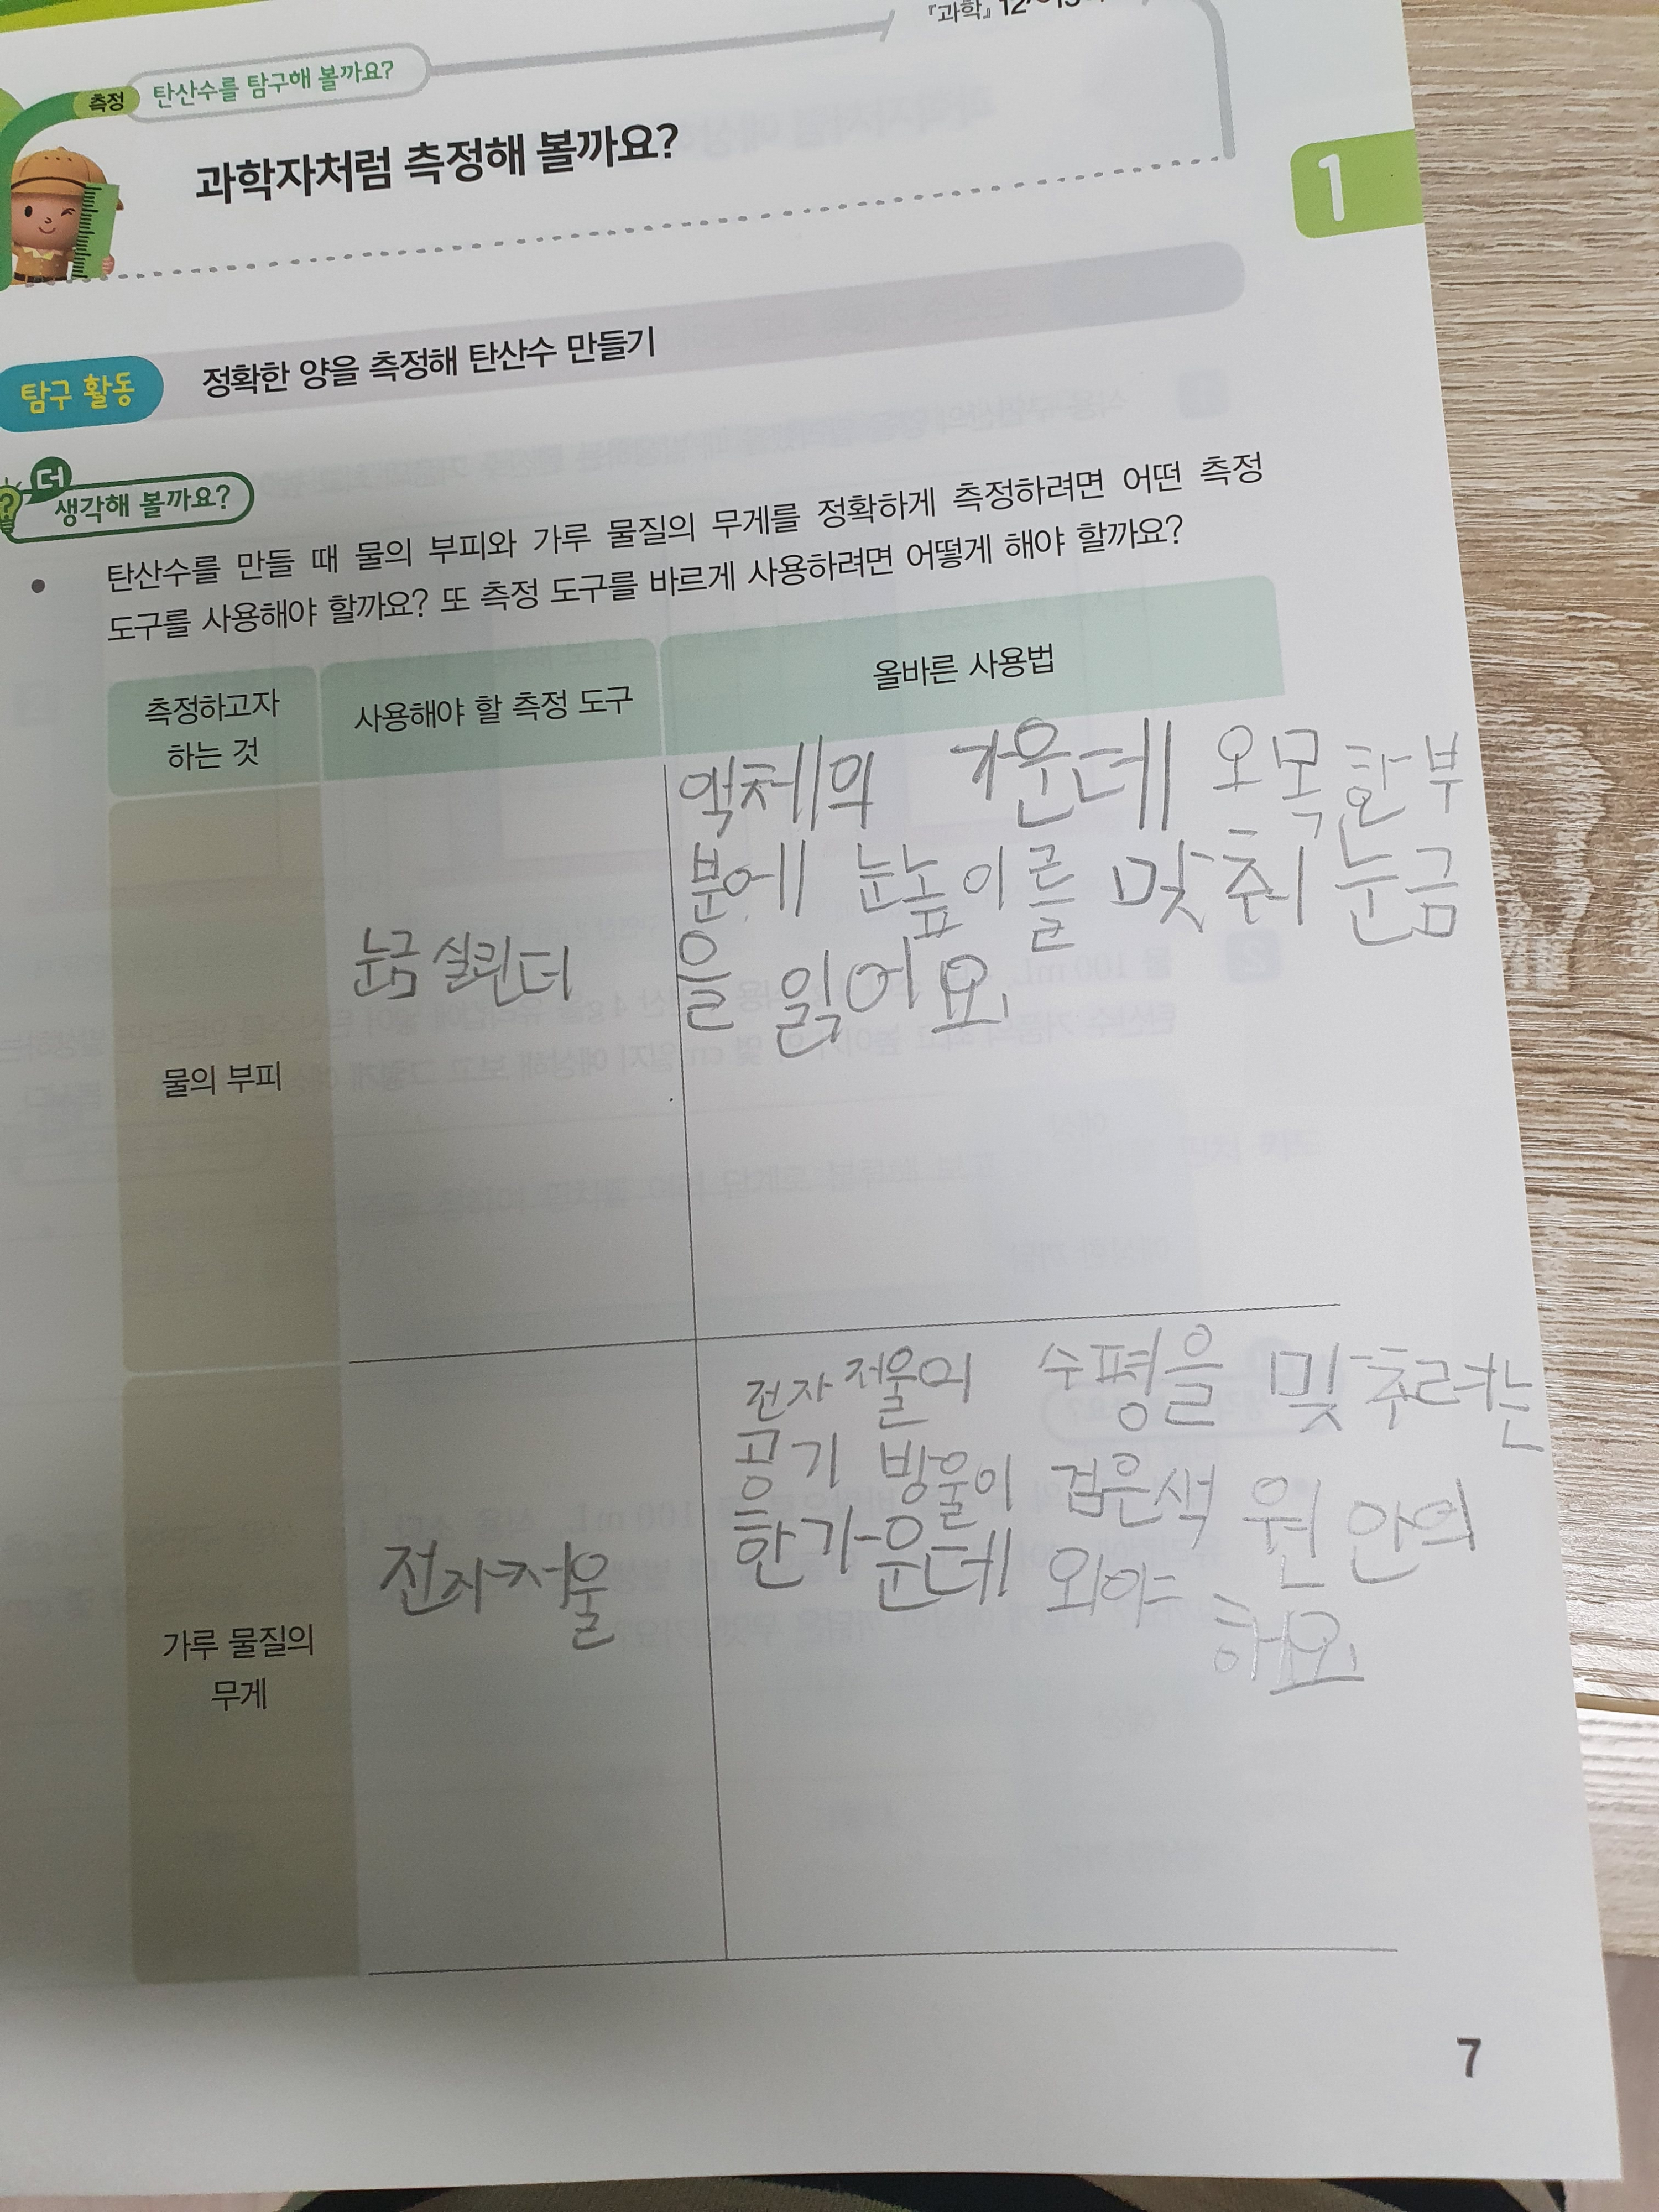 『과학』 12~13
측정 탄산수를 탐구해 볼까요?
과학자처럼 측정해 볼까요?
1
탐구 활동 정확한 양을 측정해 탄산수 만들기
더 생각해 볼까요?
• 탄산수를 만들 때 물의 부피와 가루 물질의 무게를 정확하게 측정하려면 어떤 측정
도구를 사용해야 할까요? 또 측정 도구를 바르게 사용하려면 어떻게 해야 할까요?
측정하고자
하는 것
사용해야 할 측정 도구
올바른 사용법
물의 부피
눈금 실린더
액체의 가운데 오목한 부
분에 눈높이를 맞춰 눈금
을 읽어요.
가루 물질의
무게
전자저울
전자저울의 수평을 맞추려는
공기 방울이 검은색 원 안의
한가운데 와야 해요
7